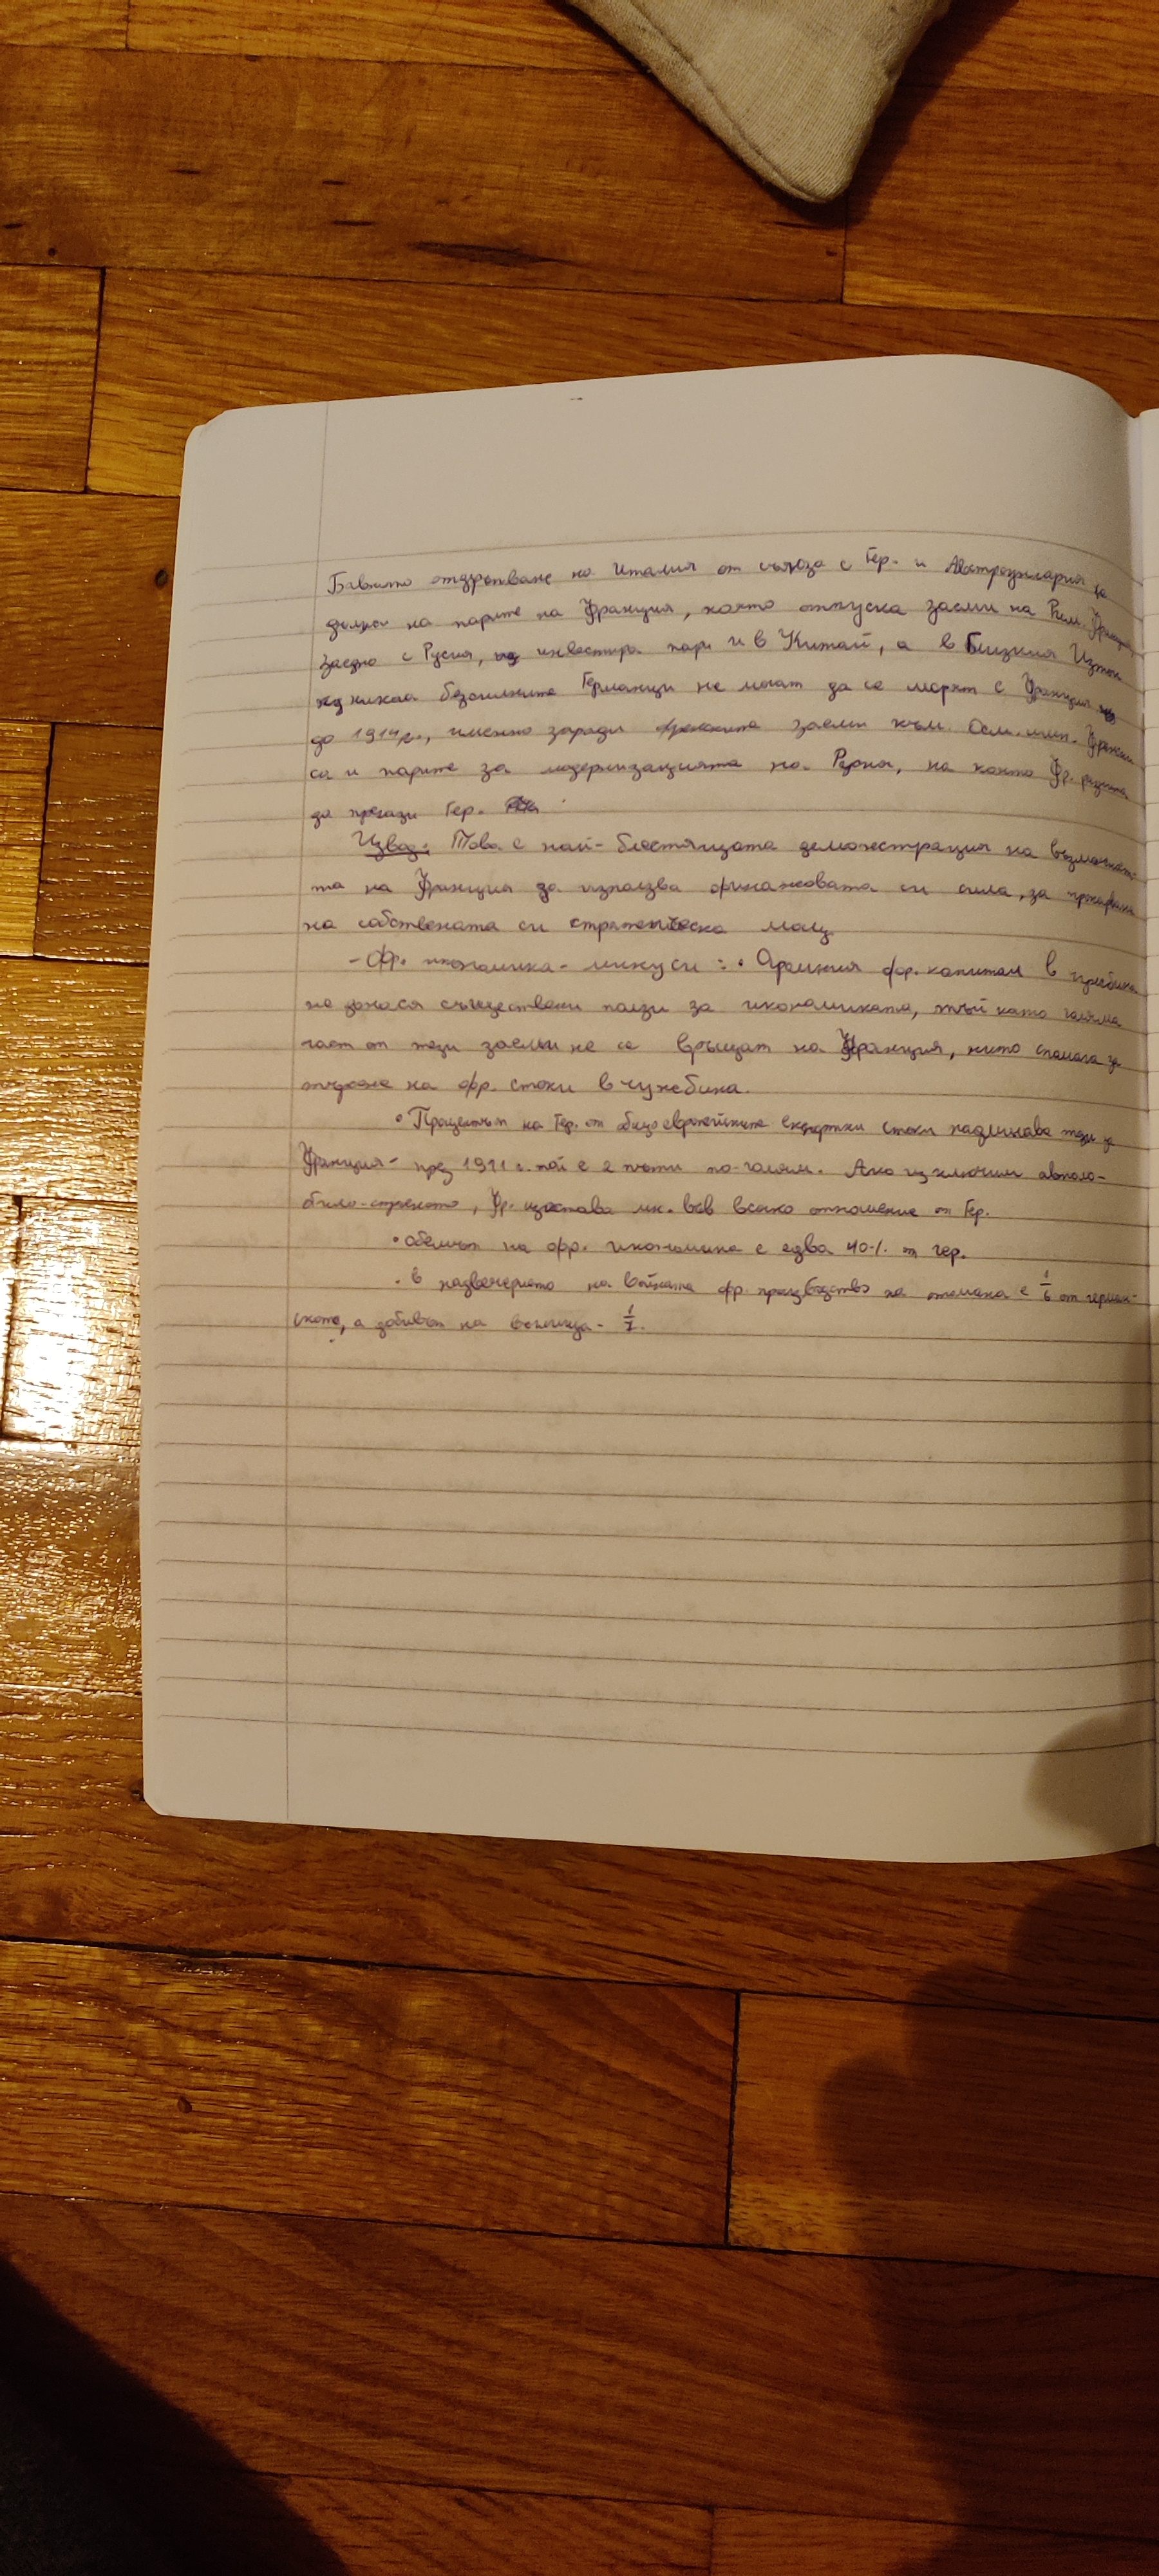 Бавното отдръпване на Италия от съюза с Гер. и Австроунгария се
дължи на парите на Франция, която отпуска заеми на Рим. Франция,
заедно с Русия, инвестира пари и в Китай, а в Близкия Изток
никак безсилните Германци не могат да се мерят с Франция
до 1914г., именно заради френските заеми към Осм. имп. Френски
са и парите за модернизацията на Русия, на която Фр. разчита
да прегази Гер.
Извод: Това е най-блестящата демонстрация на възможност-
та на Франция да използва финансовата си сила, за
на собствената си стратегическа мощ
- Фр. икономика - минуси: • Огромния фр. капитал в чужбина
не донася съществени ползи за икономиката, тъй като голяма
част от тези заеми не се връщат на Франция, нито спомага за
на фр. стоки в чужбина.
• Процентът на Гер. от общоевропейските експортни стоки надминава тези за
Франция - през 1911 г. той е 2 пъти по-голям. Ако изключим автомо-
било-строенето, Фр. изостава мн. във всяко отношение от Гер.
• обемът на фр. икономика е едва 40% от гер.
• в надвечерието на войната фр. производство на стомана е 1/6 от герман-
ското, а добивът на въглища - 1/7.